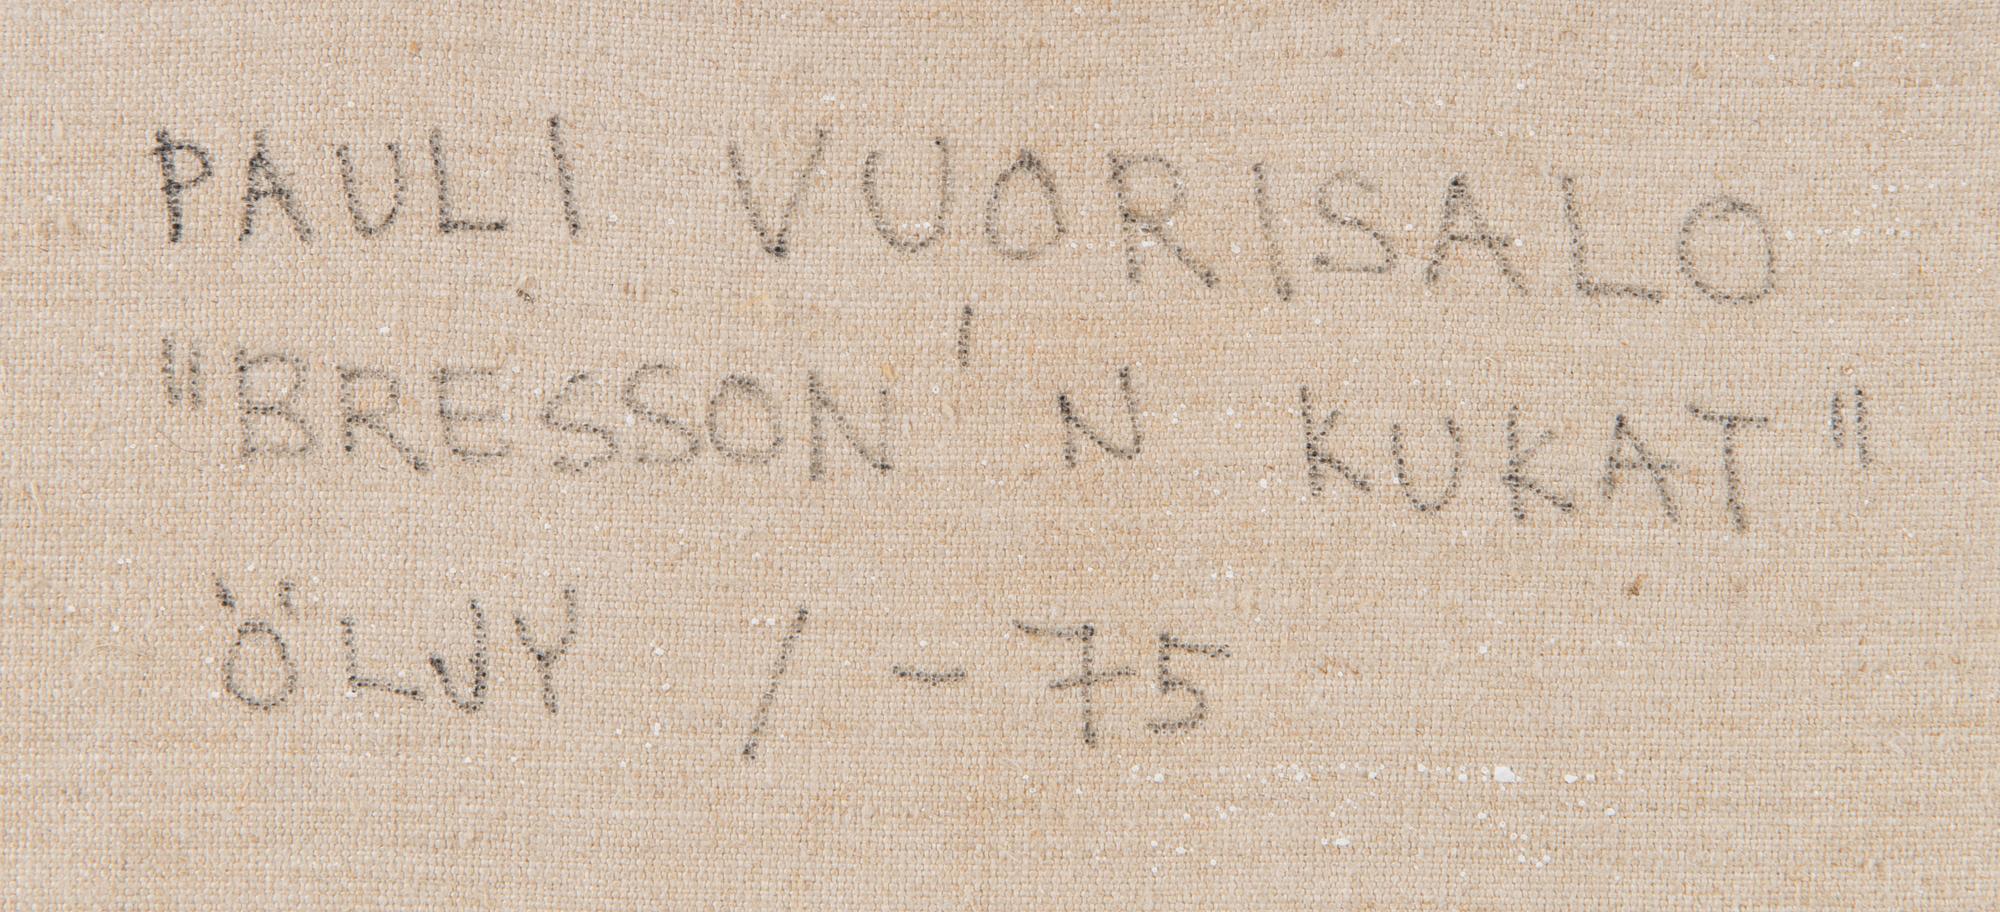 PAULI VUORISALO
"BRESSON'N KUKAT"
ÖLJY / -75